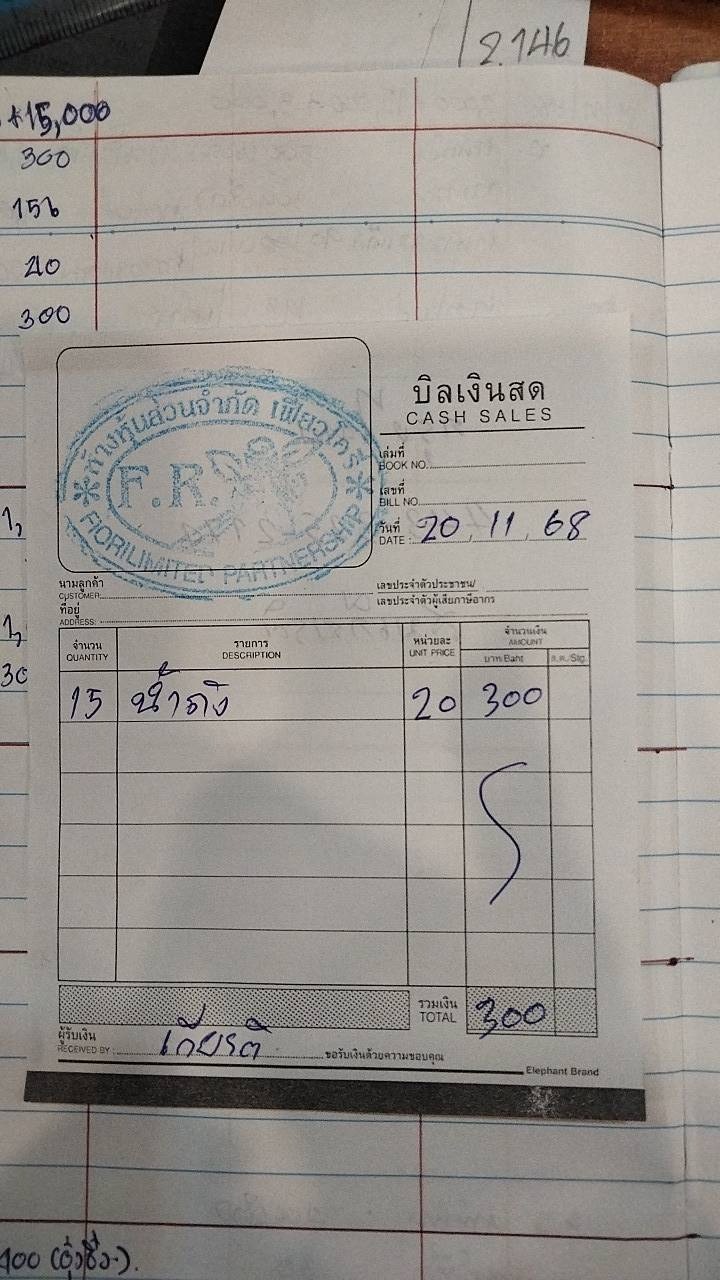 2.146
+15,000
300
156
20
300
ห้างหุ้นส่วนจำกัด เฟียวโครี่
F.R.
FIORILIMITED PARTNERSHIP
บิลเงินสด
CASH SALES
เล่มที่
BOOK NO.
เลขที่
BILL NO.
วันที่
DATE : 20 11 68
นามลูกค้า
CUSTOMER:
เลขประจำตัวประชาชน/
เลขประจำตัวผู้เสียภาษีอากร
ที่อยู่
ADDRESS:
จำนวน รายการ หน่วยละ จำนวนเงิน
QUANTITY DESCRIPTION UNIT PRICE AMOUNT
บาท Baht ส.ต./Stg.
15 น้ำถัง 20 300
รวมเงิน
TOTAL 300
ผู้รับเงิน
RECEIVED BY : เกียรติ ขอรับเงินด้วยความขอบคุณ
Elephant Brand
1,
1,
30